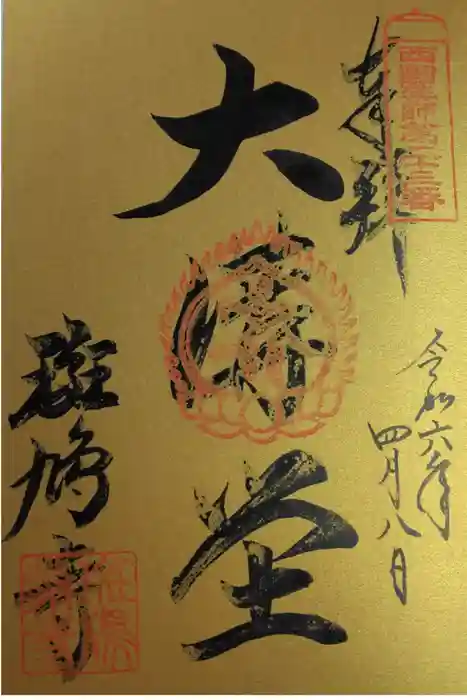 西國薬師第二十三番
奉拝
令和六年
四月八日
大講堂
斑鳩寺